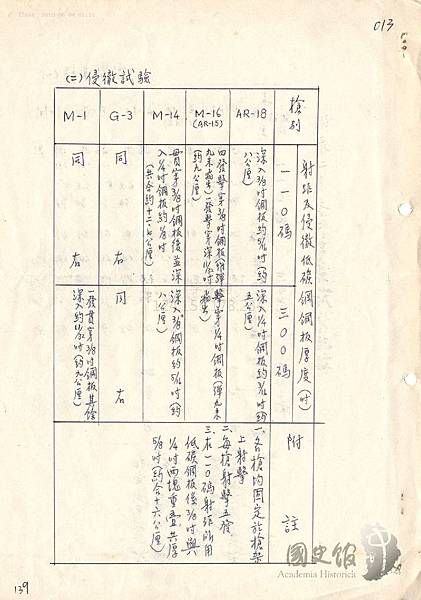 013
(二)侵徹試驗
槍別
射距及侵徹低碳鋼鋼板厚度(吋)
附註
一一〇碼
三〇〇碼
AR-18
深入3/8吋鋼板約5/16吋(約
八公厘)
深入1/4吋鋼板約3/16吋(約
五公厘)
M-16
(AR-15)
四發擊穿3/8吋鋼板(惟彈
九未
一發擊穿深
(約九公厘)
擊穿1/4吋鋼板(彈丸未
M-14
貫穿3/8吋鋼板後並深
入1/4吋鋼板約1/8吋
(共合約十二・七公厘)
深入3/8吋鋼板約5/16吋(約
八公厘)
G-3
同右
同右
M-1
同右
一發貫穿3/8吋鋼板其餘
深入約11/32吋(約九公厘)
一、各槍均固定於槍架
上射擊
二、每槍射擊五發
三、在一一〇碼射距所用
低碳鋼板後3/8吋與
1/4吋兩塊重疊共厚
5/8吋(約合十六公厘)
國史館
Academia Historica
139